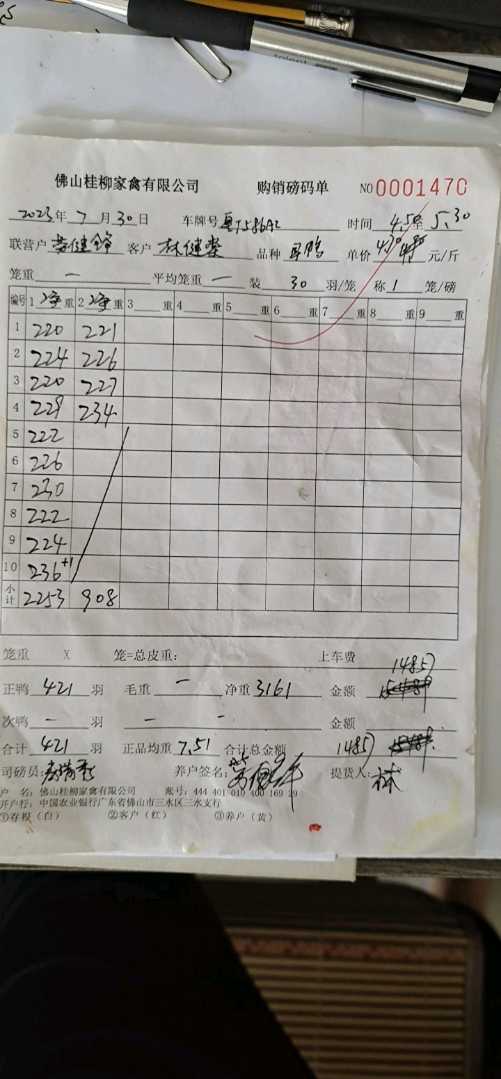 佛山桂柳家禽有限公司 购销磅码单 NO 0001470
2023年 7 月 30 日 车牌号 粤J586A2 时间 4.50至 5.30
联营户 客户 林健 品种 单价 元/斤
笼重 一 平均笼重 一 装 30 羽/笼 称 1 笼/磅
编号 1 净重 2 净重 3 重 4 重 5 重 6 重 7 重 8 重 9 重
1 220 221
2 224 226
3 220 227
4 229 234
5 222
6 226
7 230
8 222
9 224
10 236+1
小计 2253 908
笼重 X 笼=总皮重: 上车费
14857
正鸭 421 羽 毛重 一 净重 3161 金额
次鸭 一 羽 一 一 金额
合计 421 羽 正品均重 7.51 合计总金额 14857
司磅员: 养户签名: 提货人: 林
户 名: 佛山桂柳家禽有限公司 账号: 444 401 010 400 169 29
开户行: 中国农业银行广东省佛山市三水区三水支行
①存根（白） ②客户（红） ③养户（黄）